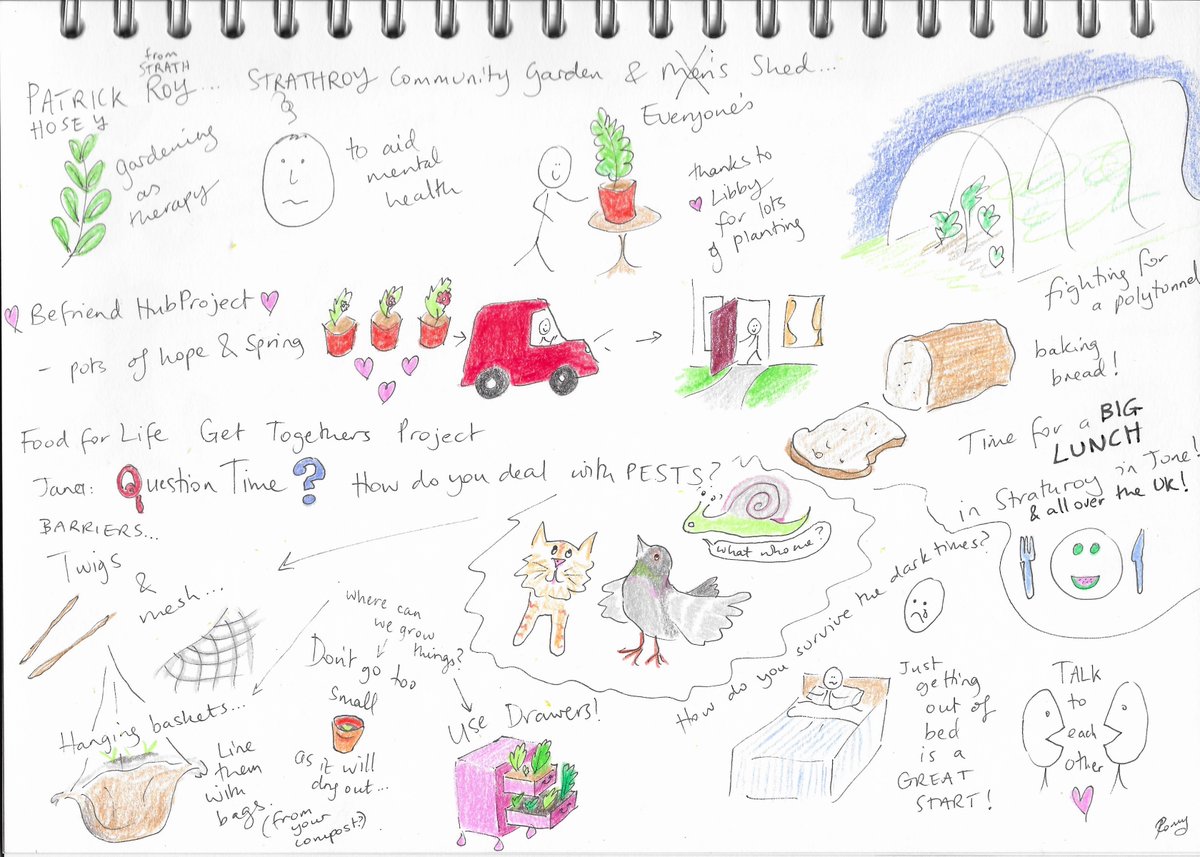 from
STRATH
PATRICK ROY...
HOSEY
STRATHROY Community Garden & Men's Shed...
Everyone's
gardening
as
therapy
to aid
mental
health
thanks to
Libby
for lots
of planting
fighting for
a polytunnel
Befriend HubProject
- pots of hope & Spring
baking
bread!
Food for Life Get Togethers Project
Time for a BIG
LUNCH
in June!
in Strathroy
& all over the UK!
Janet: Question Time? How do you deal with PESTS?
what who me?
BARRIERS...
Twigs
&
mesh...
where can
we grow
things?
Don't go too
small
as it will
dry out...
(from
your
compost?)
Hanging baskets...
Line
them
with
bags.
Use Drawers!
How do you survive the dark times?
Just
getting
out of
bed
is a
GREAT
START!
TALK
to
each
other